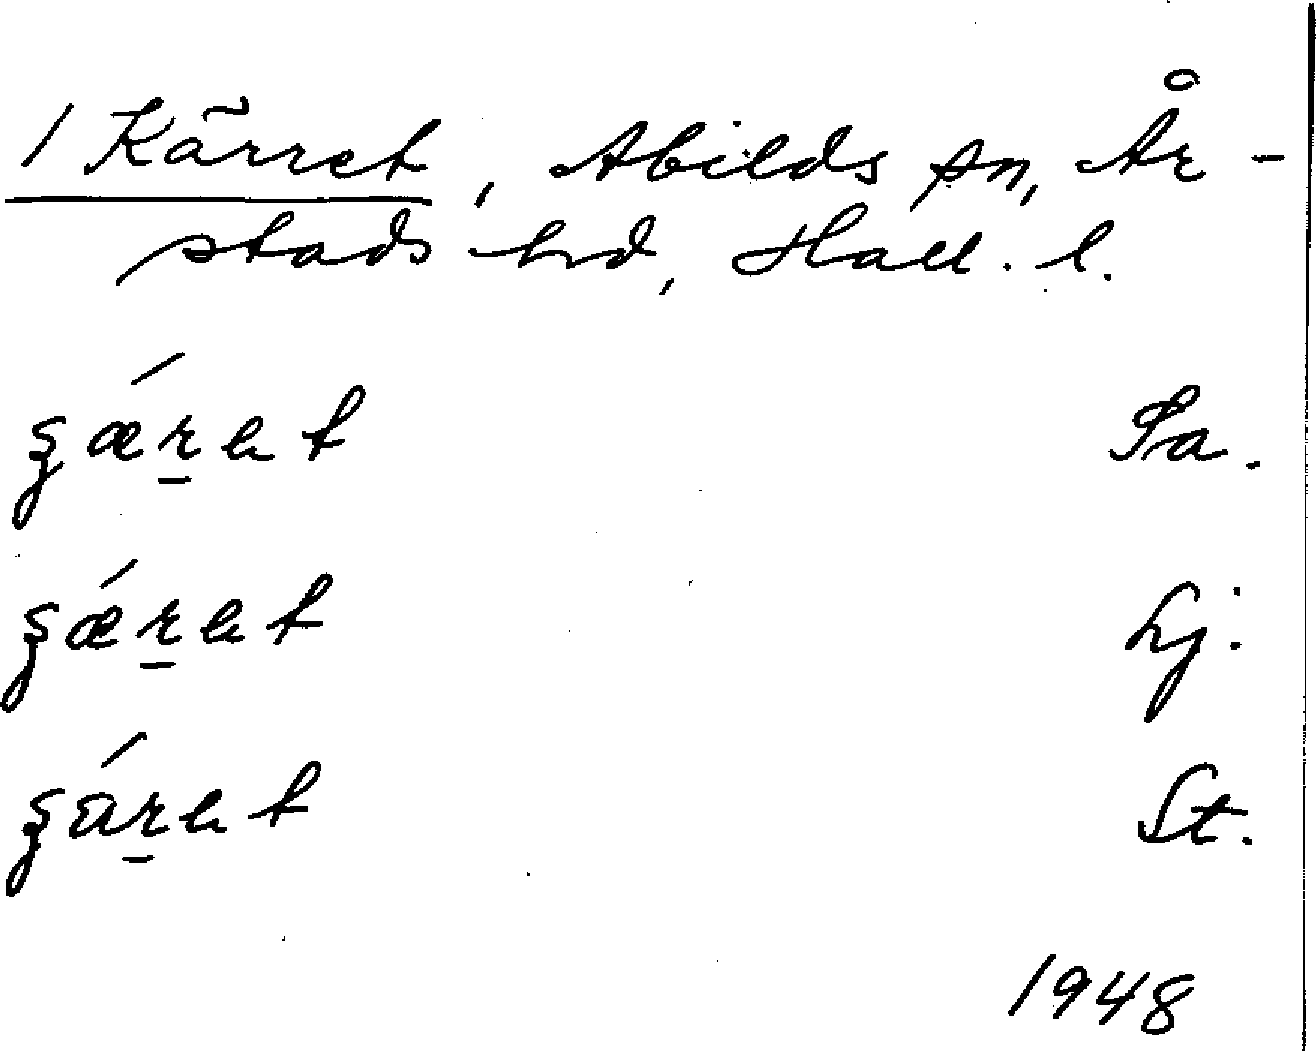 1 Kärret, Abilds sn, År-
stads hd, Hall. l.
ʂǽr̲et Sa.
ʂǽr̲et Lj.
ʂár̲et St.
1948